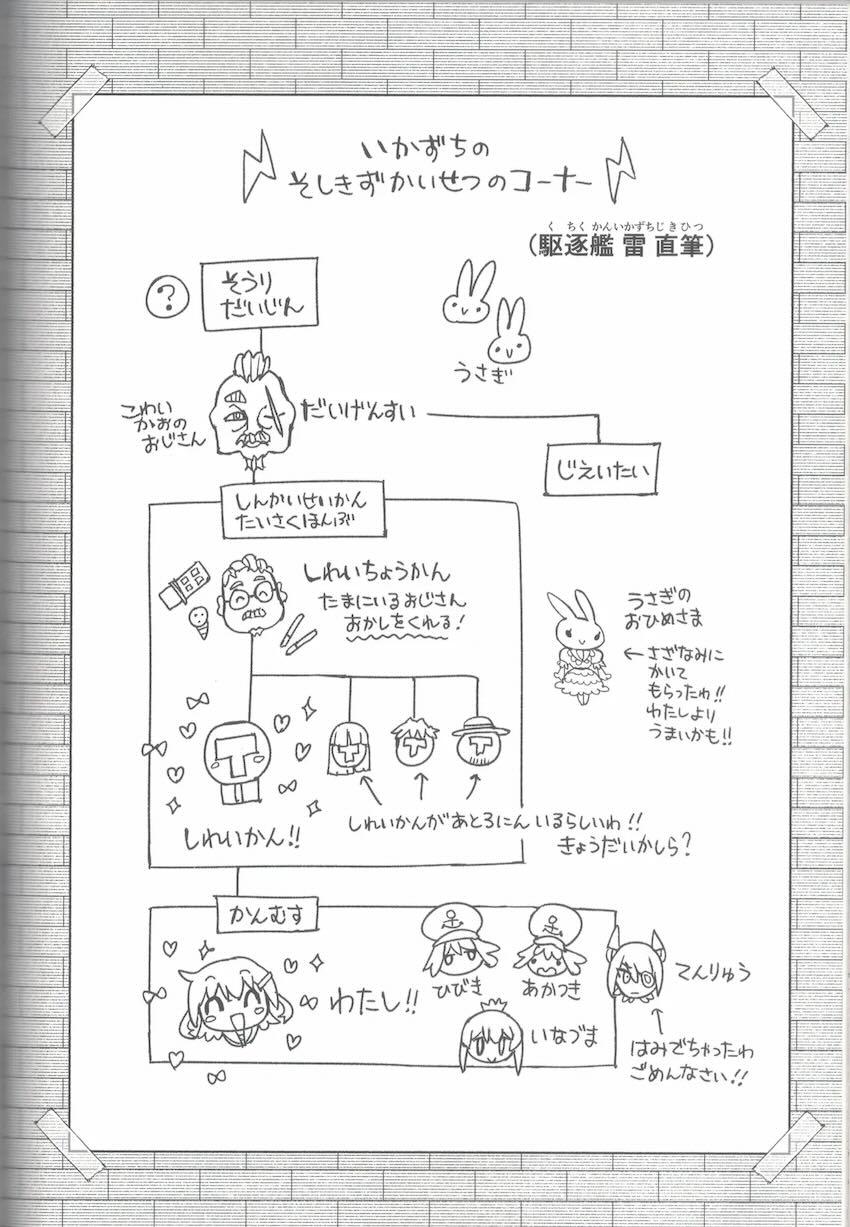 いかずちの
そしきずかいせつのコーナー
く ちく かんいかずちじきひつ
(駆逐艦 雷 直筆)
?
そうり
だいじん
うさぎ
こわい
かおの
おじさん
だいげんすい
じえいたい
しんかいせいかん
たいさくほんぶ
しれいちょうかん
たまにいるおじさん
おかしをくれる!
うさぎの
おひめさま
←さざなみに
かいて
もらったわ!!
わたしより
うまいかも!!
しれいかん!!
しれいかんがあと3にん いるらしいわ!!
きょうだいかしら?
かんむす
わたし!!
ひびき
あかつき
てんりゅう
いなづま
はみでちゃったわ
ごめんなさい!!